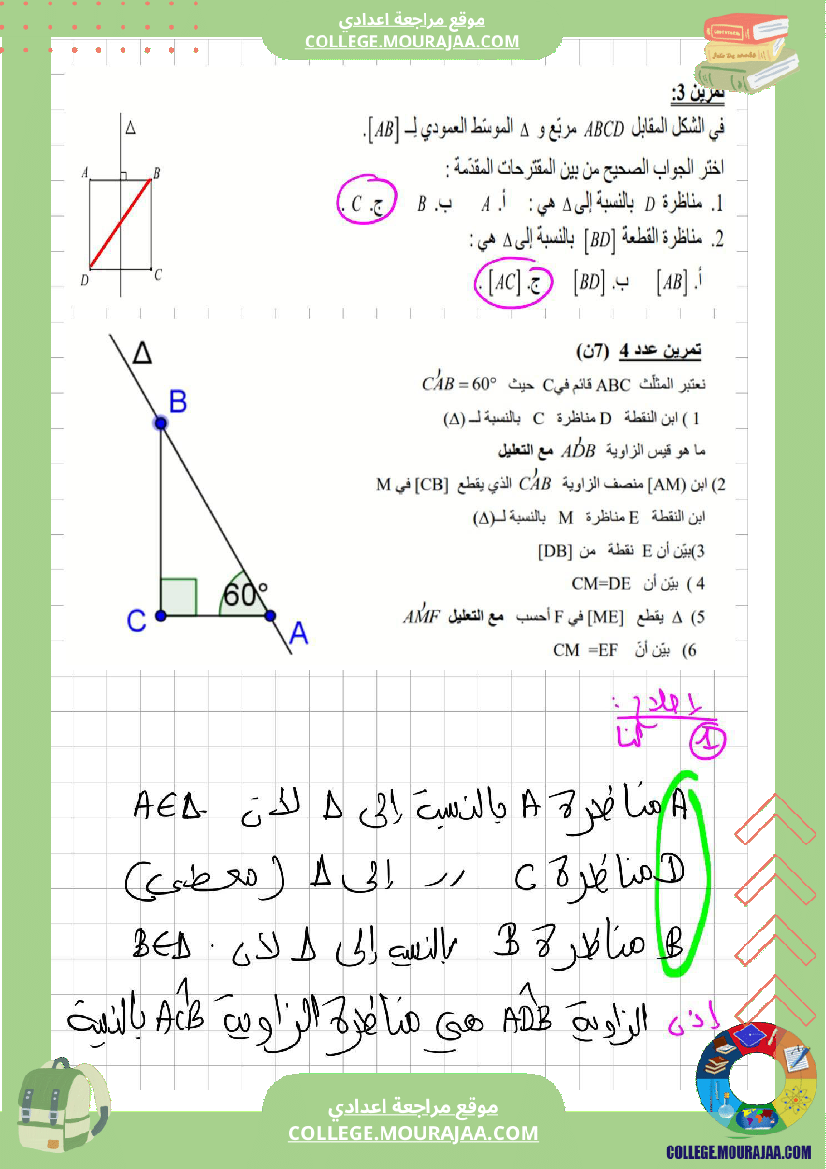 موقع مراجعة اعدادي
COLLEGE.MOURAJAA.COM
تمرين 3:
في الشكل المقابل ABCD مربّع و Δ الموسّط العمودي لِـ [AB].
اختر الجواب الصحيح من بين المقترحات المقدّمة :
1. مناظرة D بالنسبة إلى Δ هي : أ. A ب. B ج. C .
2. مناظرة القطعة [BD] بالنسبة إلى Δ هي :
أ. [AB] ب. [BD] ج. [AC] .
Δ
A B
D C
تمرين عدد 4 (7ن)
نعتبر المثلّث ABC قائم في C حيث CAB = 60°
1 ) ابن النقطة D مناظرة C بالنسبة لــ (Δ)
ما هو قيس الزاوية ADB مع التعليل
2) ابن [AM) منصف الزاوية CAB الذي يقطع [CB] في M
ابن النقطة E مناظرة M بالنسبة لــ(Δ)
3)بيّن أن E نقطة من [DB]
4 ) بيّن أن CM=DE
5) Δ يقطع [ME] في F أحسب مع التعليل AMF
6) بيّن أنّ CM =EF
Δ
B
60°
C
A
الاصلاح :
1 لنا
A مناظرة A بالنسبة إلى Δ لأن A∈Δ
D مناظرة C // إلى Δ (معطى)
B مناظرة B بالنسبة إلى Δ لأن B∈Δ.
إذن الزاوية ADB هي مناظرة الزاوية ACB بالنسبة
موقع مراجعة اعدادي
COLLEGE.MOURAJAA.COM
COLLEGE.MOURAJAA.COM